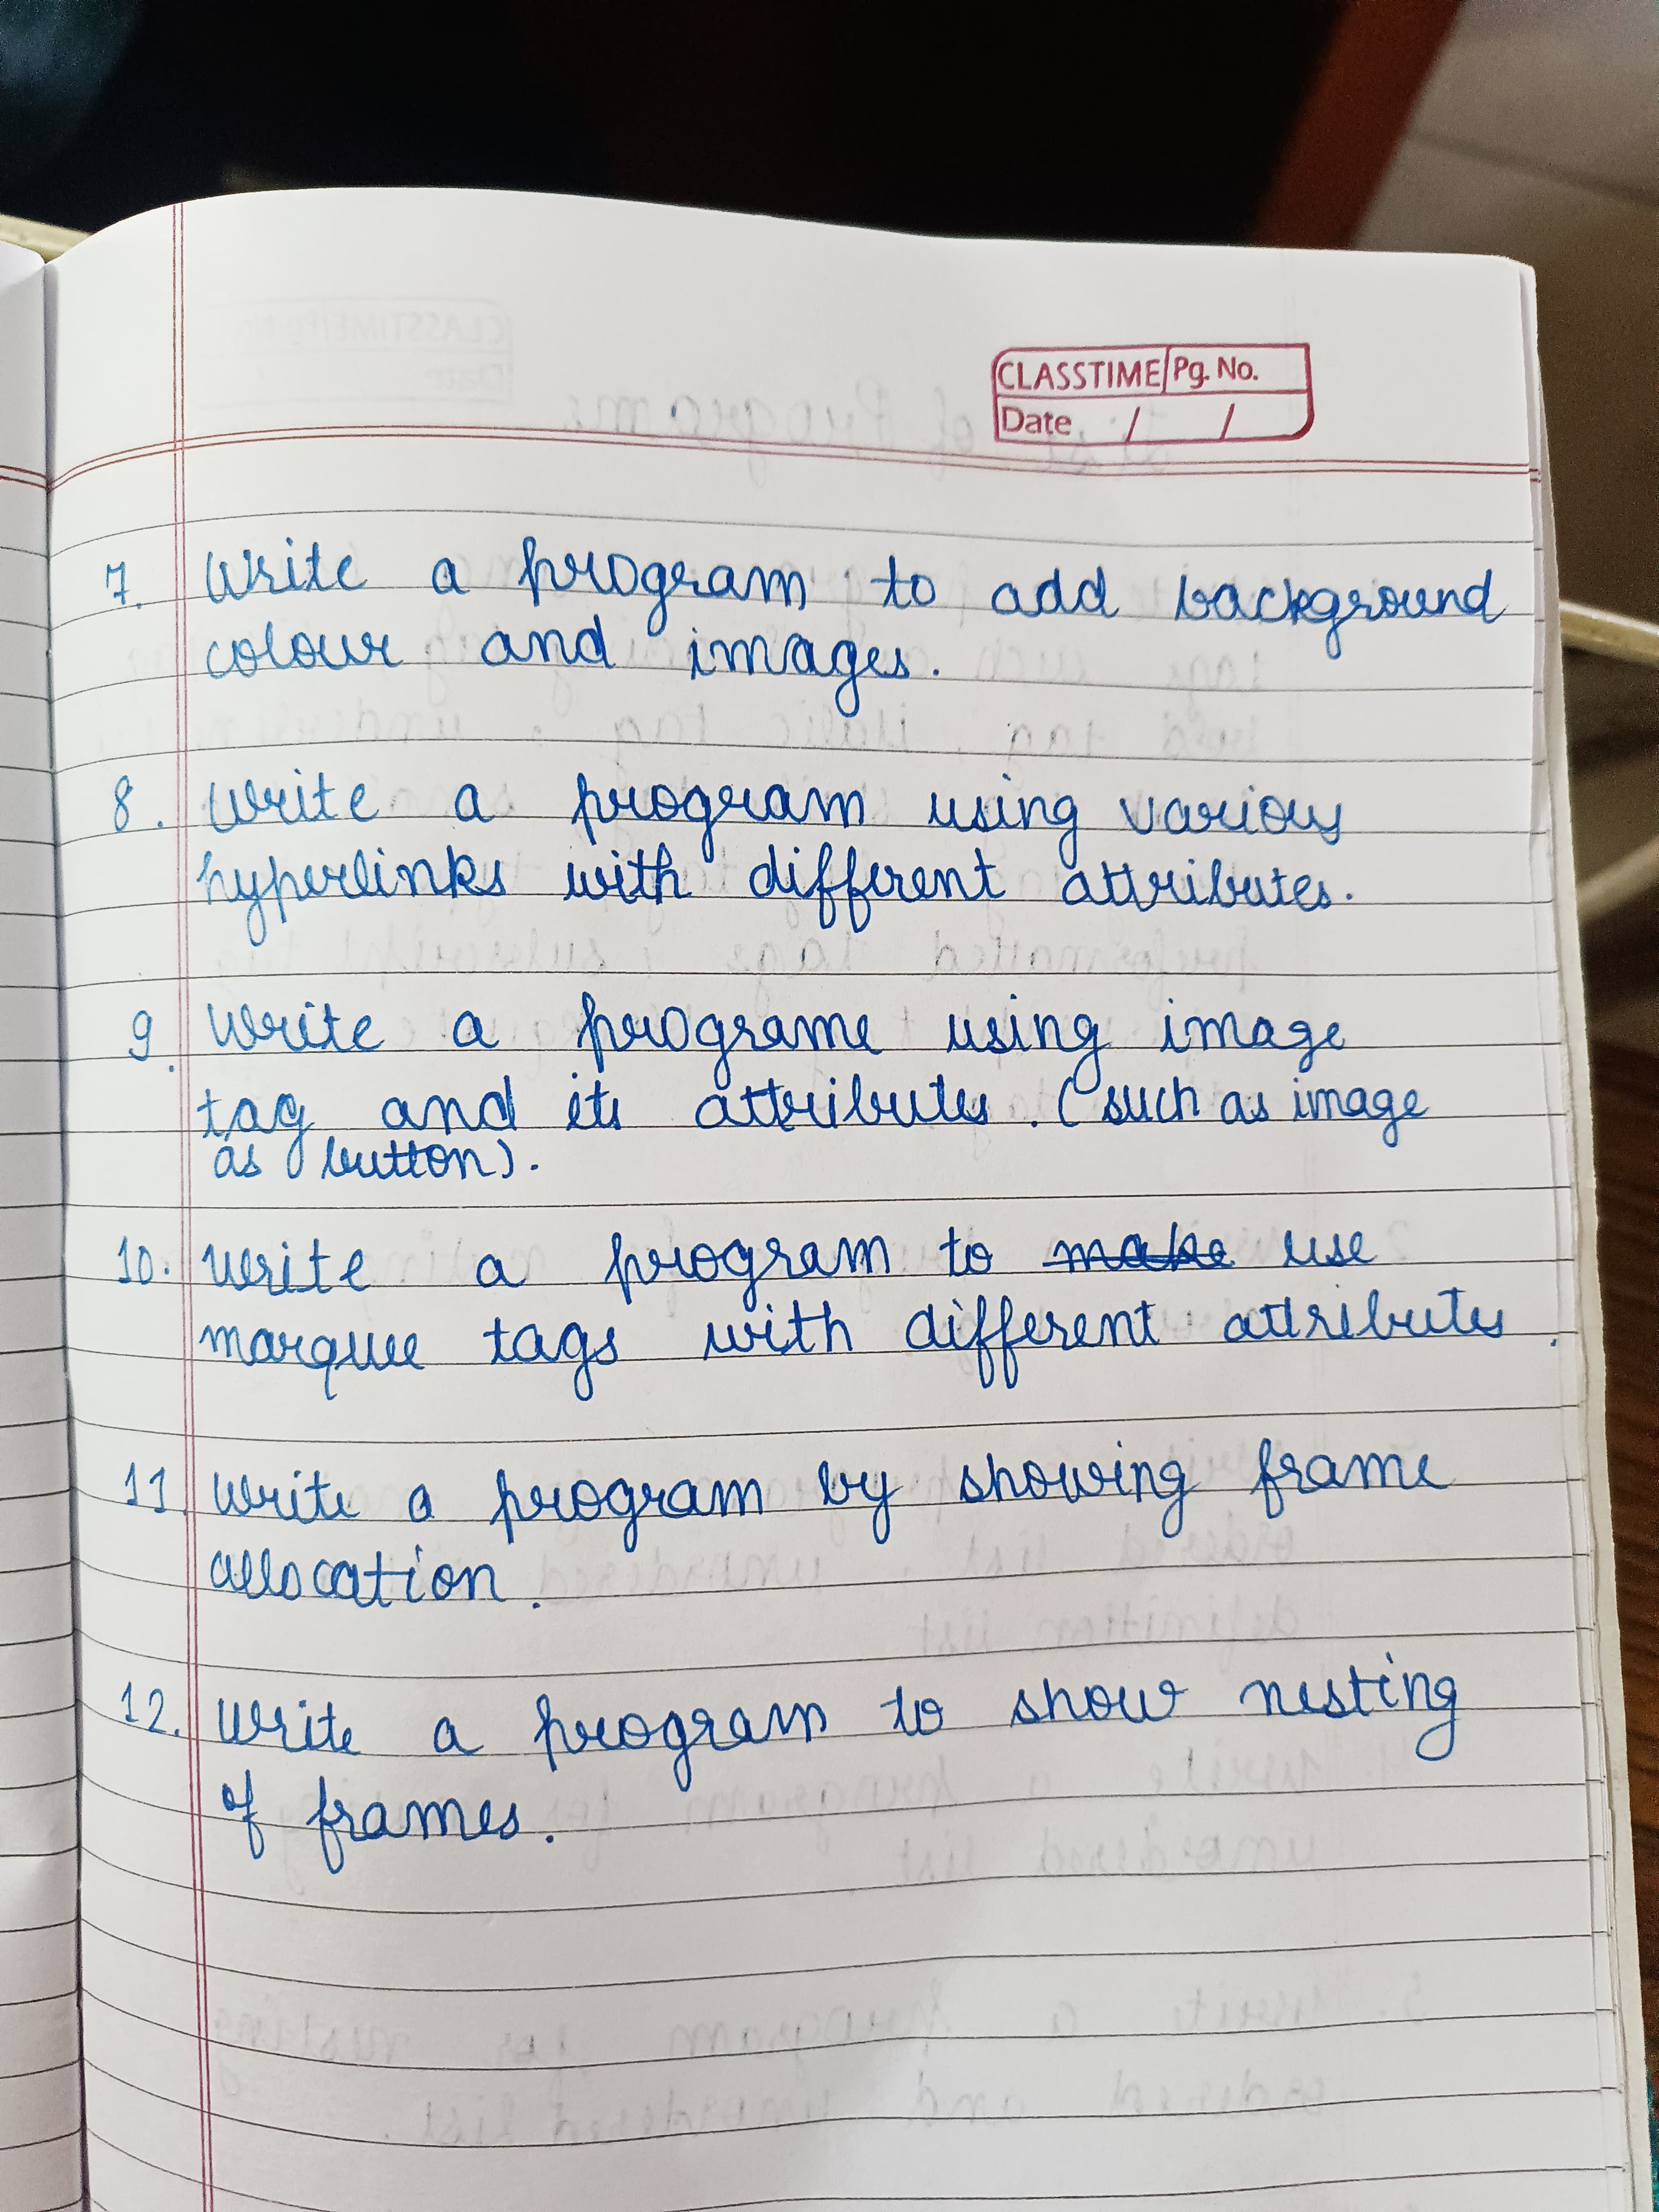 CLASSTIME Pg. No.
Date / /
7. Write a program to add background
colour and images.
8. Write a program using various
hyperlinks with different attributes.
9. Write a programe using image
tag and its attributes. (such as image
as button).
10. Write a program to make use
marquee tags with different attributes.
11. Write a program by showing frame
allocation.
12. Write a program to show nesting
of frames.